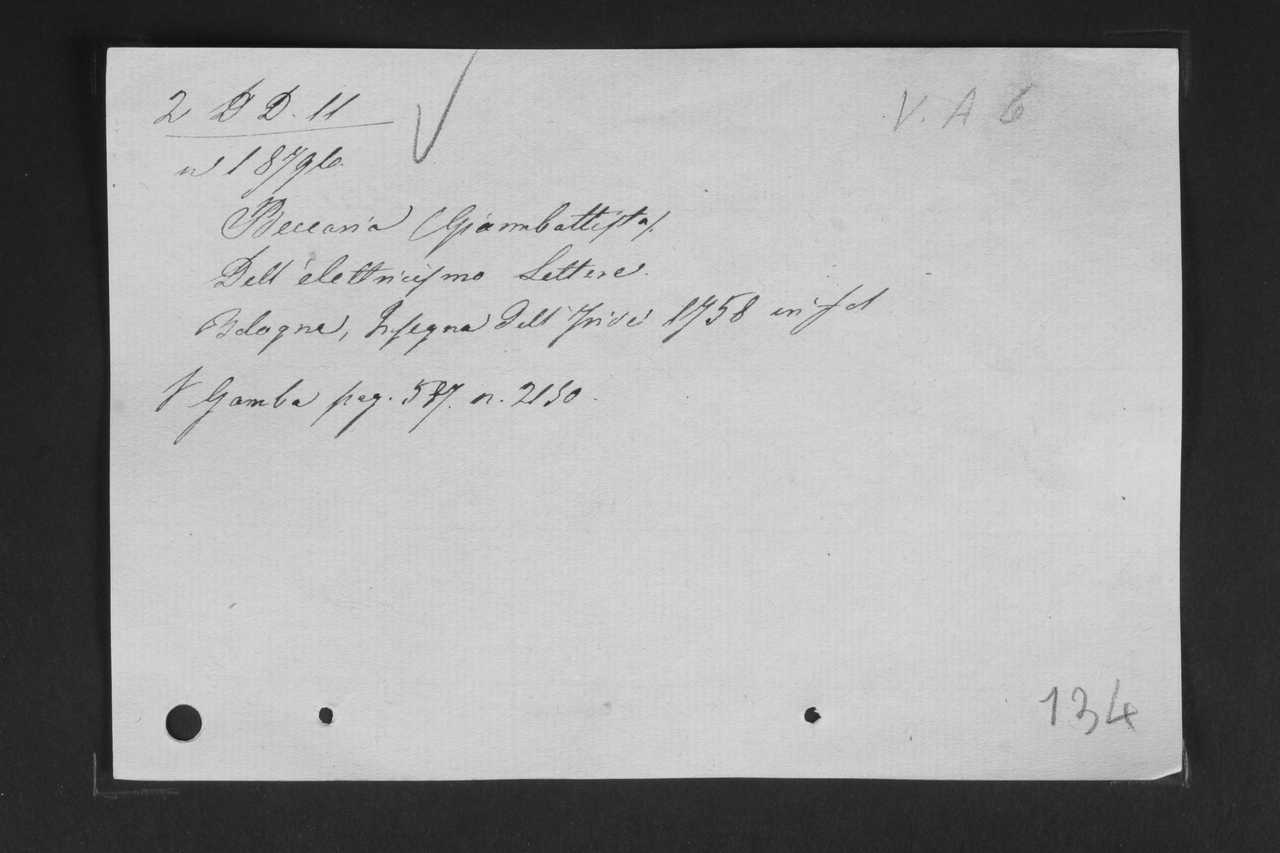 2 D D. 11
V. A 6
n° 18796.
Beccaria (Giambattista).
Dell'elettricismo Lettere.
Bologna, Insegna dell'Iride 1758 in fol
V Gamba pag. 587. n. 2150.
134